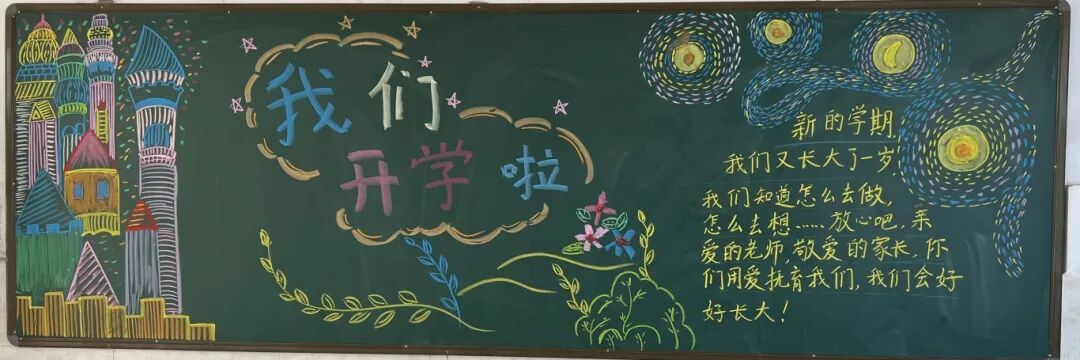 我们
开学啦
新的学期
我们又长大了一岁,
我们知道怎么去做,
怎么去想……放心吧,亲
爱的老师,敬爱的家长,你
们用爱抚育我们,我们会好
好长大!